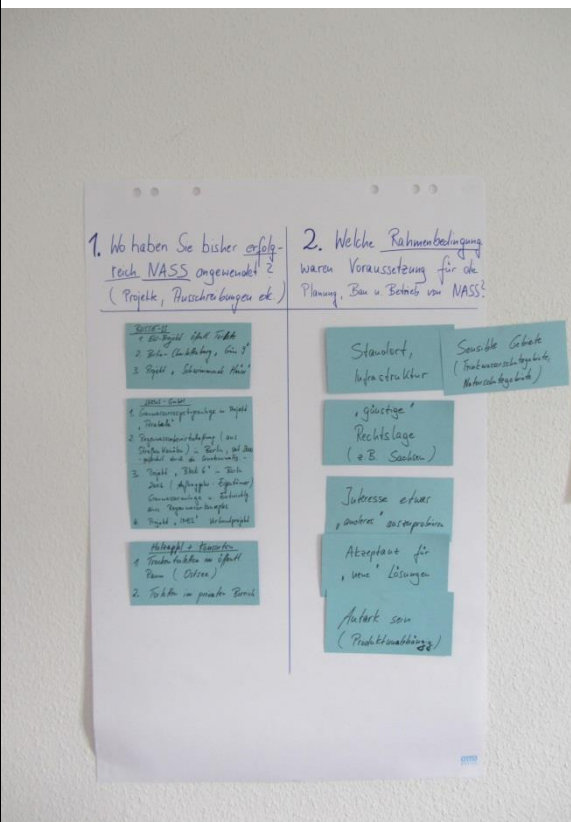 1. Wo haben Sie bisher erfolg-
reich NASS angewendet?
(Projekte, Ausschreibungen etc.)
BUSSE-IS
1. EU-Projekt öffentl. Toilette
2. Berlin Charlottenburg,
3. Projekt „Schwimmende Häuser"
GmbH
1. Grauwasserrecyclinganlage in Projekt
2. Regenwasserbewirtschaftung (aus
Straßen Kanälen) – Berlin, seit 2000
3. Projekt „Block 6" – Berlin
2006 (Auftraggeber Eigentümer)
Grauwasseranlage u.
4. Projekt Verbundprojekt
Holzapfel + Konsorten
1. Trockentoiletten im öffentl.
Raum (Ostsee)
2. Toiletten im privaten Bereich
2. Welche Rahmenbedingung
waren Voraussetzung für die
Planung, Bau u. Betrieb von NASS?
Standort,
Infrastruktur
Sensible Gebiete
(Trinkwasserschutzgebiete,
Naturschutzgebiete)
„günstige"
Rechtslage
(z.B. Sachsen)
Interesse etwas
„anderes" auszuprobieren
Akzeptanz für
„neue" Lösungen
Autark sein
(Produktunabhängig)